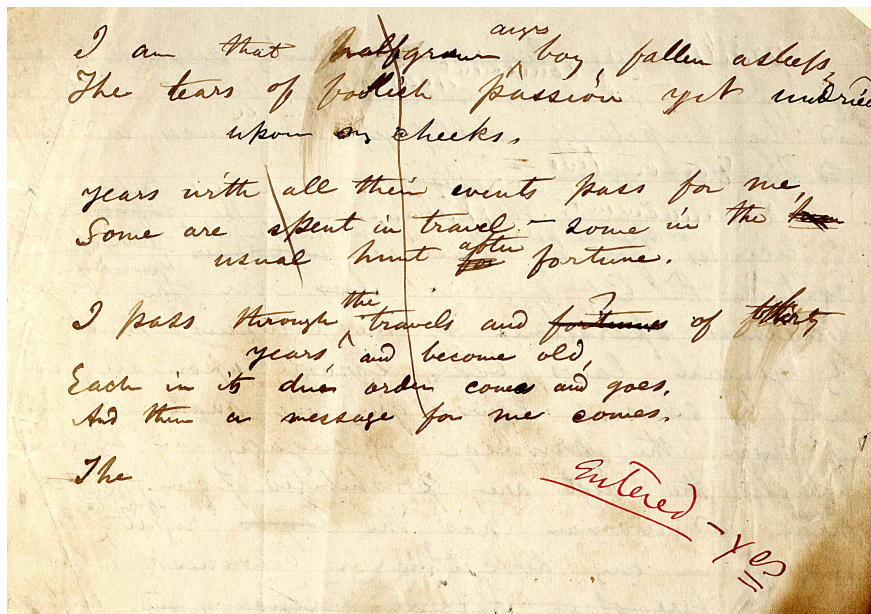 angry
I am that halfgrown boy, fallen asleep,
The tears of foolish passion yet undried
upon my cheeks.
years with all their events pass for me,
Some are spent in travel – some in the
usual hunt after fortune.
I pass through the travels and fortunes of thirty
years and become old,
Each in its due order comes and goes,
And then a message for me comes.
The
Entered – Yes